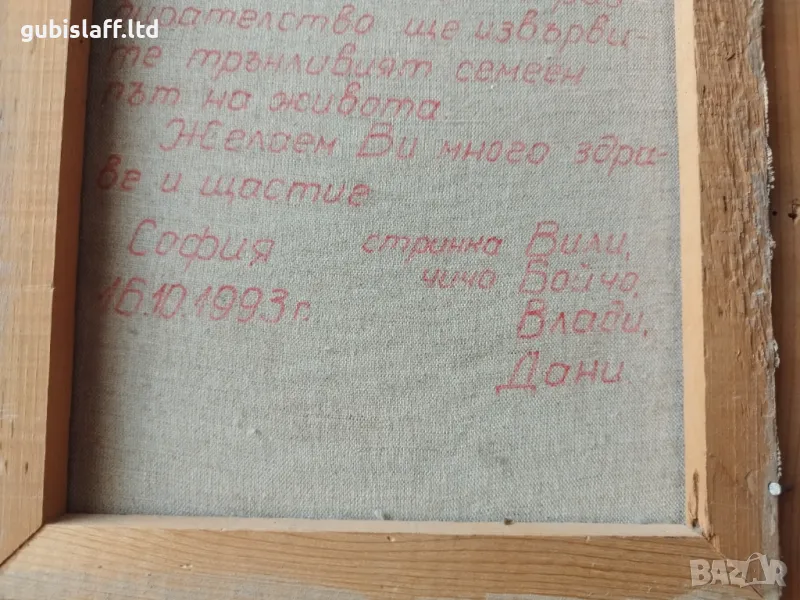 gubislaff.ltd
бирателство ще извърви-
те трънливият семеен
път на живота.
Желаем Ви много здра-
ве и щастие
София стринка Вили,
чичо Бойчо,
16.10.1993 г. Влади,
Дани.
BAZAR